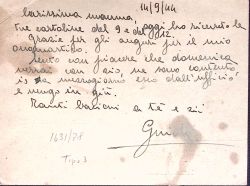 14/9/44
Carissima mamma,
oggi ho ricevuto le
tue cartoline del 9 e del 12.
Grazie per gli auguri per il mio
onomastico.
Sento con piacere che domenica
verrai con zio, ne sono contento
a mezzogiorno esco dall'ufficio
e vengo in giù.
Tanti bacioni a te e zii
1631/78
Tipo 3